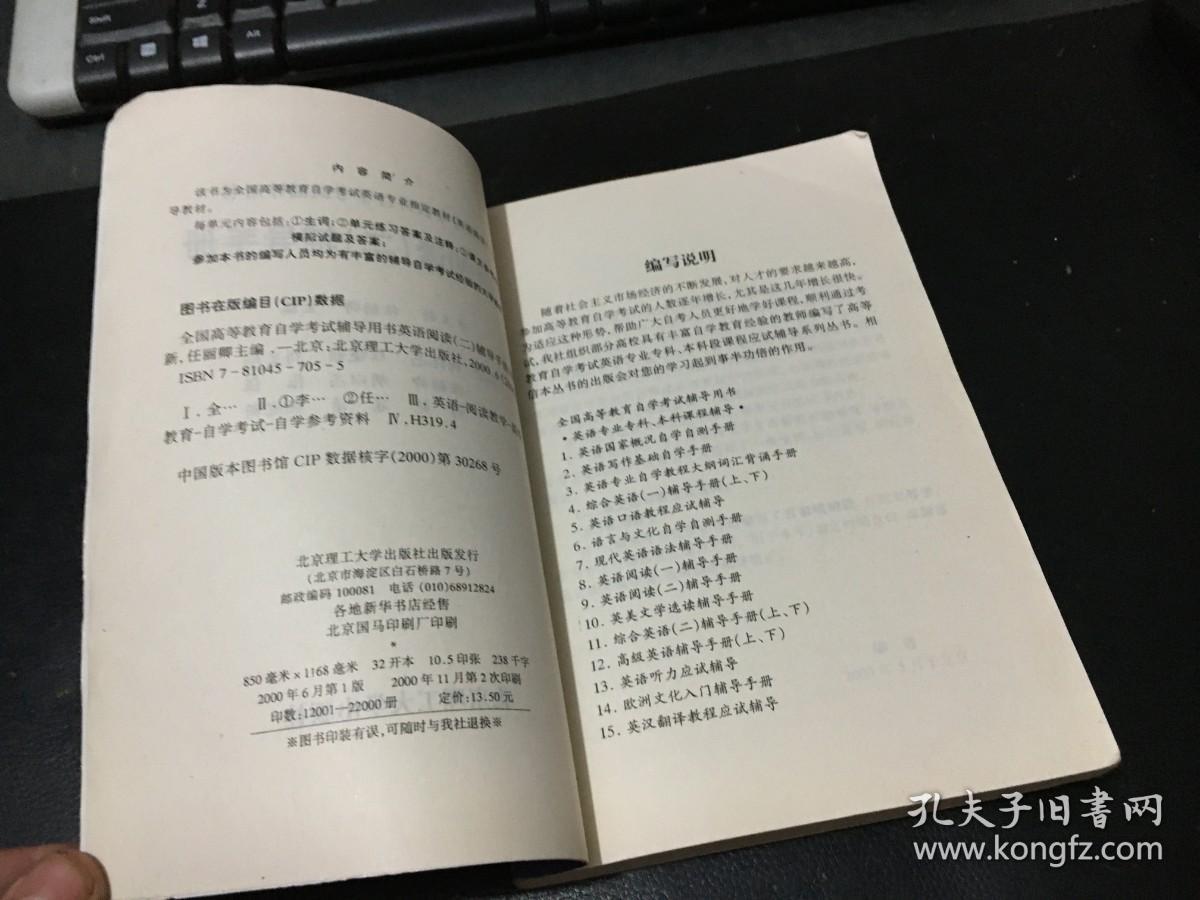 Shift
Ctrl
Alt
内容简介
该书为全国高等教育自学考试英语专业指定教材
导教材。
每单元内容包括:①生词;②单元练习答案及注释;③
模拟试题及答案;
参加本书的编写人员均为有丰富的辅导自学考试经验的大学
图书在版编目(CIP)数据
全国高等教育自学考试辅导用书英语阅读(二)辅导手
新,任丽卿主编.—北京:北京理工大学出版社,2000.6
ISBN 7-81045-705-5
Ⅰ.全… Ⅱ.①李… ②任… Ⅲ.英语-阅读教学-
教育-自学考试-自学参考资料 Ⅳ.H319.4
中国版本图书馆CIP数据核字(2000)第30268号
北京理工大学出版社出版发行
(北京市海淀区白石桥路7号)
邮政编码 100081 电话 (010)68912824
各地新华书店经售
北京国马印刷厂印刷
*
850毫米×1168毫米 32开本 10.5印张 238千字
2000年6月第1版 2000年11月第2次印刷
印数:12001—22000册 定价:13.50元
※图书印装有误,可随时与我社退换※
编写说明
随着社会主义市场经济的不断发展,对人才的要求越来越高,
参加高等教育自学考试的人数逐年增长,尤其是这几年增长很快。
为适应这种形势,帮助广大自考人员更好地学好课程,顺利通过考
试,我社组织部分高校具有丰富自学教育经验的教师编写了高等
教育自学考试英语专业专科、本科段课程应试辅导系列丛书。相
信本丛书的出版会对您的学习起到事半功倍的作用。
全国高等教育自学考试辅导用书
·英语专业专科、本科课程辅导·
1. 英语国家概况自学自测手册
2. 英语写作基础自学手册
3. 英语专业自学教程大纲词汇背诵手册
4. 综合英语(一)辅导手册(上、下)
5. 英语口语教程应试辅导
6. 语言与文化自学自测手册
7. 现代英语语法辅导手册
8. 英语阅读(一)辅导手册
9. 英语阅读(二)辅导手册
10. 英美文学选读辅导手册
11. 综合英语(二)辅导手册(上、下)
12. 高级英语辅导手册(上、下)
13. 英语听力应试辅导
14. 欧洲文化入门辅导手册
15. 英汉翻译教程应试辅导
孔夫子旧书网
www.kongfz.com